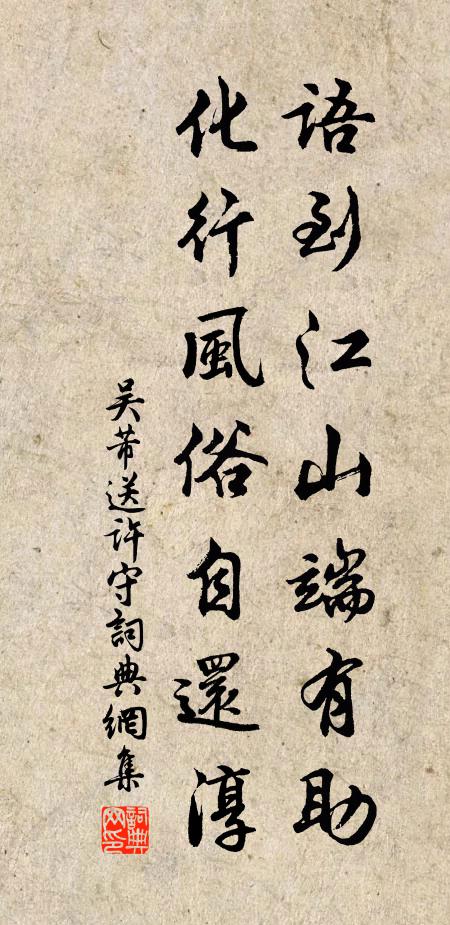 語到江山端有助
化行風俗自還淳
吳芾送許守詞典網集
詞典網印